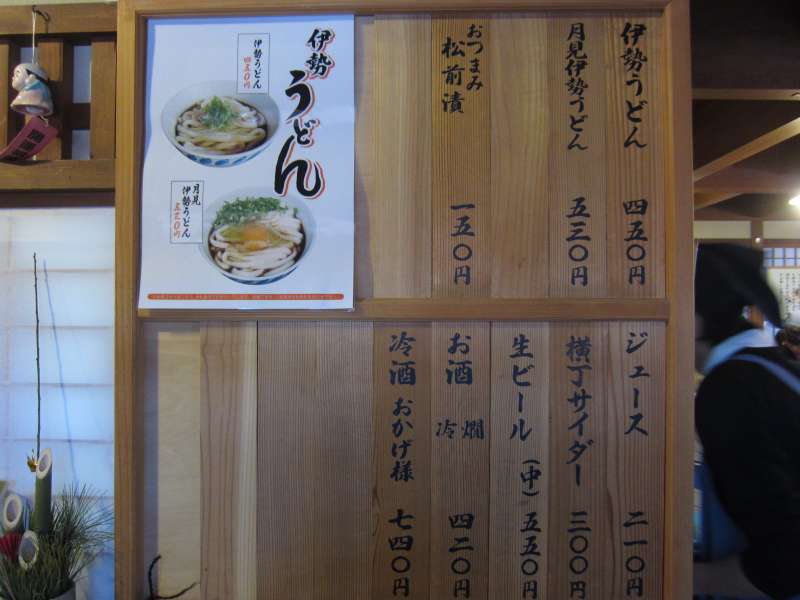 伊勢うどん 四五〇円
月見伊勢うどん 五三〇円
おつまみ 松前漬 一五〇円
伊勢うどん
伊勢うどん 四五〇円
月見伊勢うどん 五三〇円
ジュース 二一〇円
横丁サイダー 三〇〇円
生ビール (中) 五五〇円
お酒 燗 冷 四二〇円
冷酒 おかげ様 七四〇円